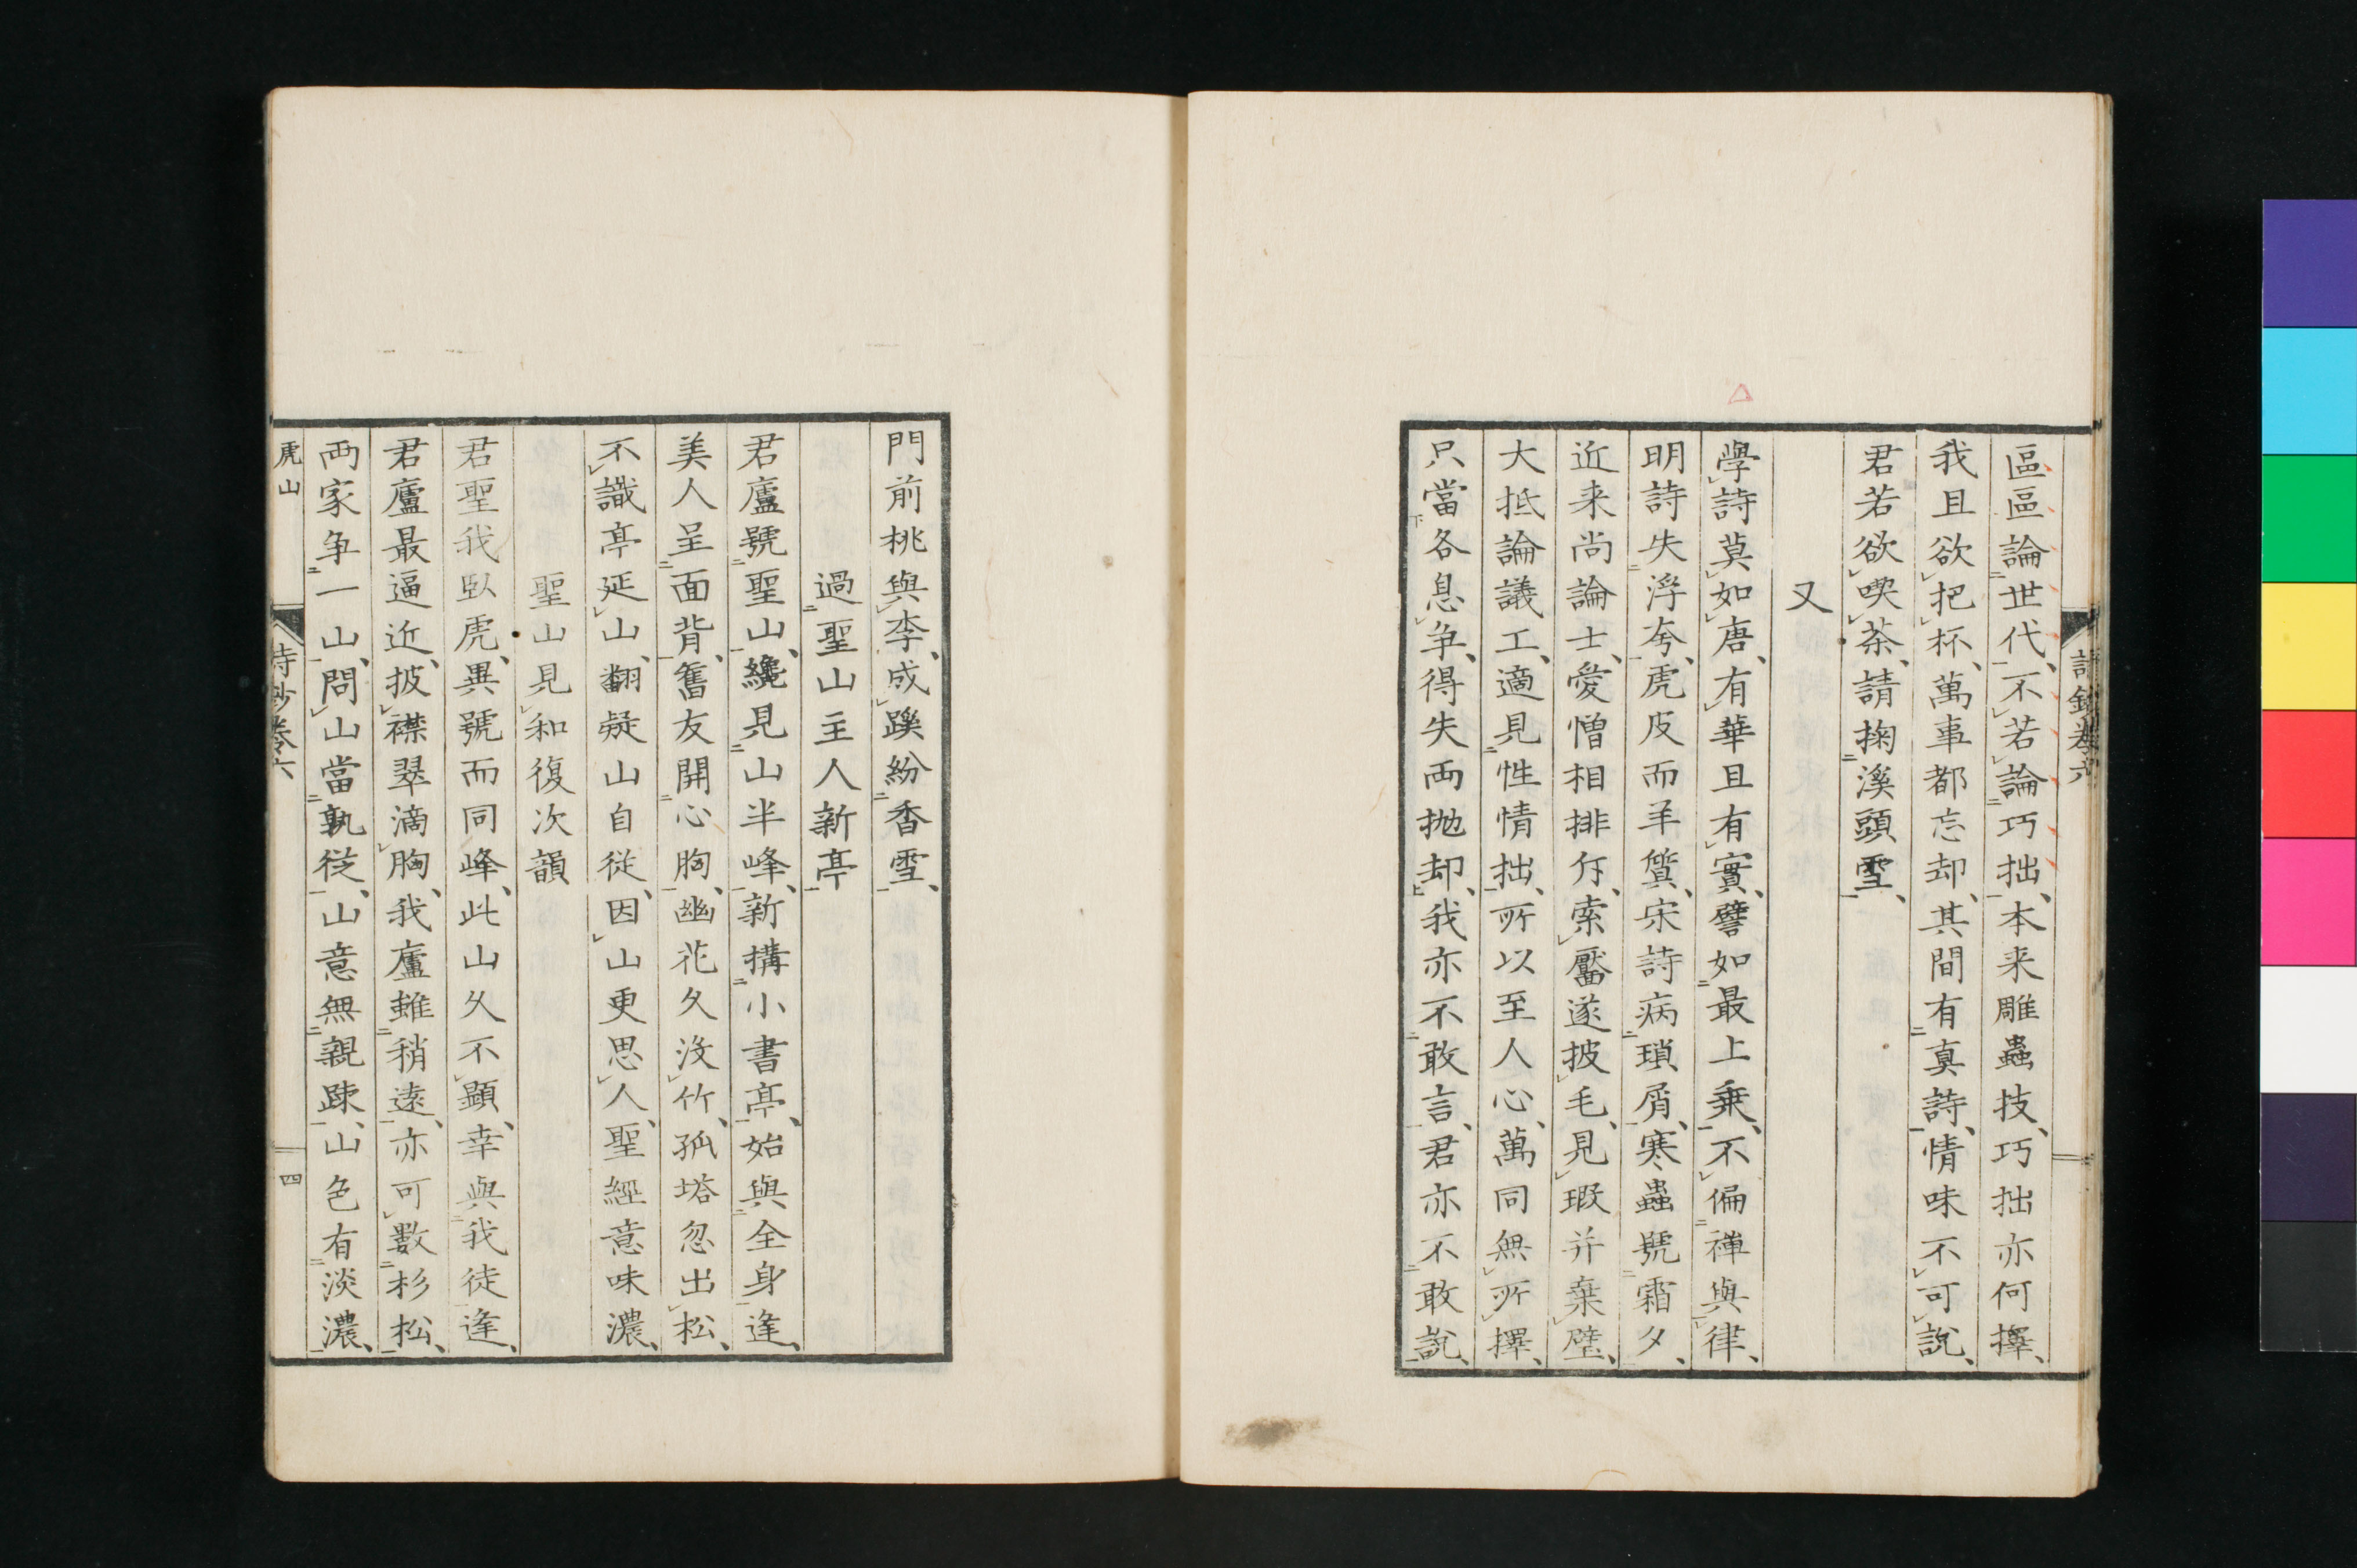 區區論世代、不若論巧拙、本来雕蟲技、巧拙亦何擇、
我且欲把杯、萬事都忘却、其間有真詩、情味不可說、
君若欲喫茶、請掬溪頭雪、
又
學詩莫如唐、有華且有實、譬如最上乗、不偏禅與律、
明詩失浮夸、虎皮而羊質、宋詩病瑣屑、寒蟲號霜夕、
近来尚論士、愛憎相排斥、索靨遂披毛、見瑕并棄璧、
大抵論議工、適見性情拙、所以至人心、萬同無所擇、
只當各息争、得失両抛却、我亦不敢言、君亦不敢說、
詩鈔卷六
門前桃與李、成蹊紛香雪、
過聖山主人新亭
君廬號聖山、纔見山半峰、新搆小書亭、始與全身逢、
美人呈面背、舊友開心胸、幽花久没竹、孤塔忽出松、
不識亭延山、翻疑山自從、因山更思人、聖經意味濃、
聖山見和復次韻
君聖我臥虎、異號而同峰、此山久不顯、幸與我徒逢、
君廬最逼近、披襟翠滴胸、我廬雖稍遠、亦可數杉松、
両家争一山、問山當孰從、山意無親疎、山色有淡濃、
虎山
詩鈔卷六
四